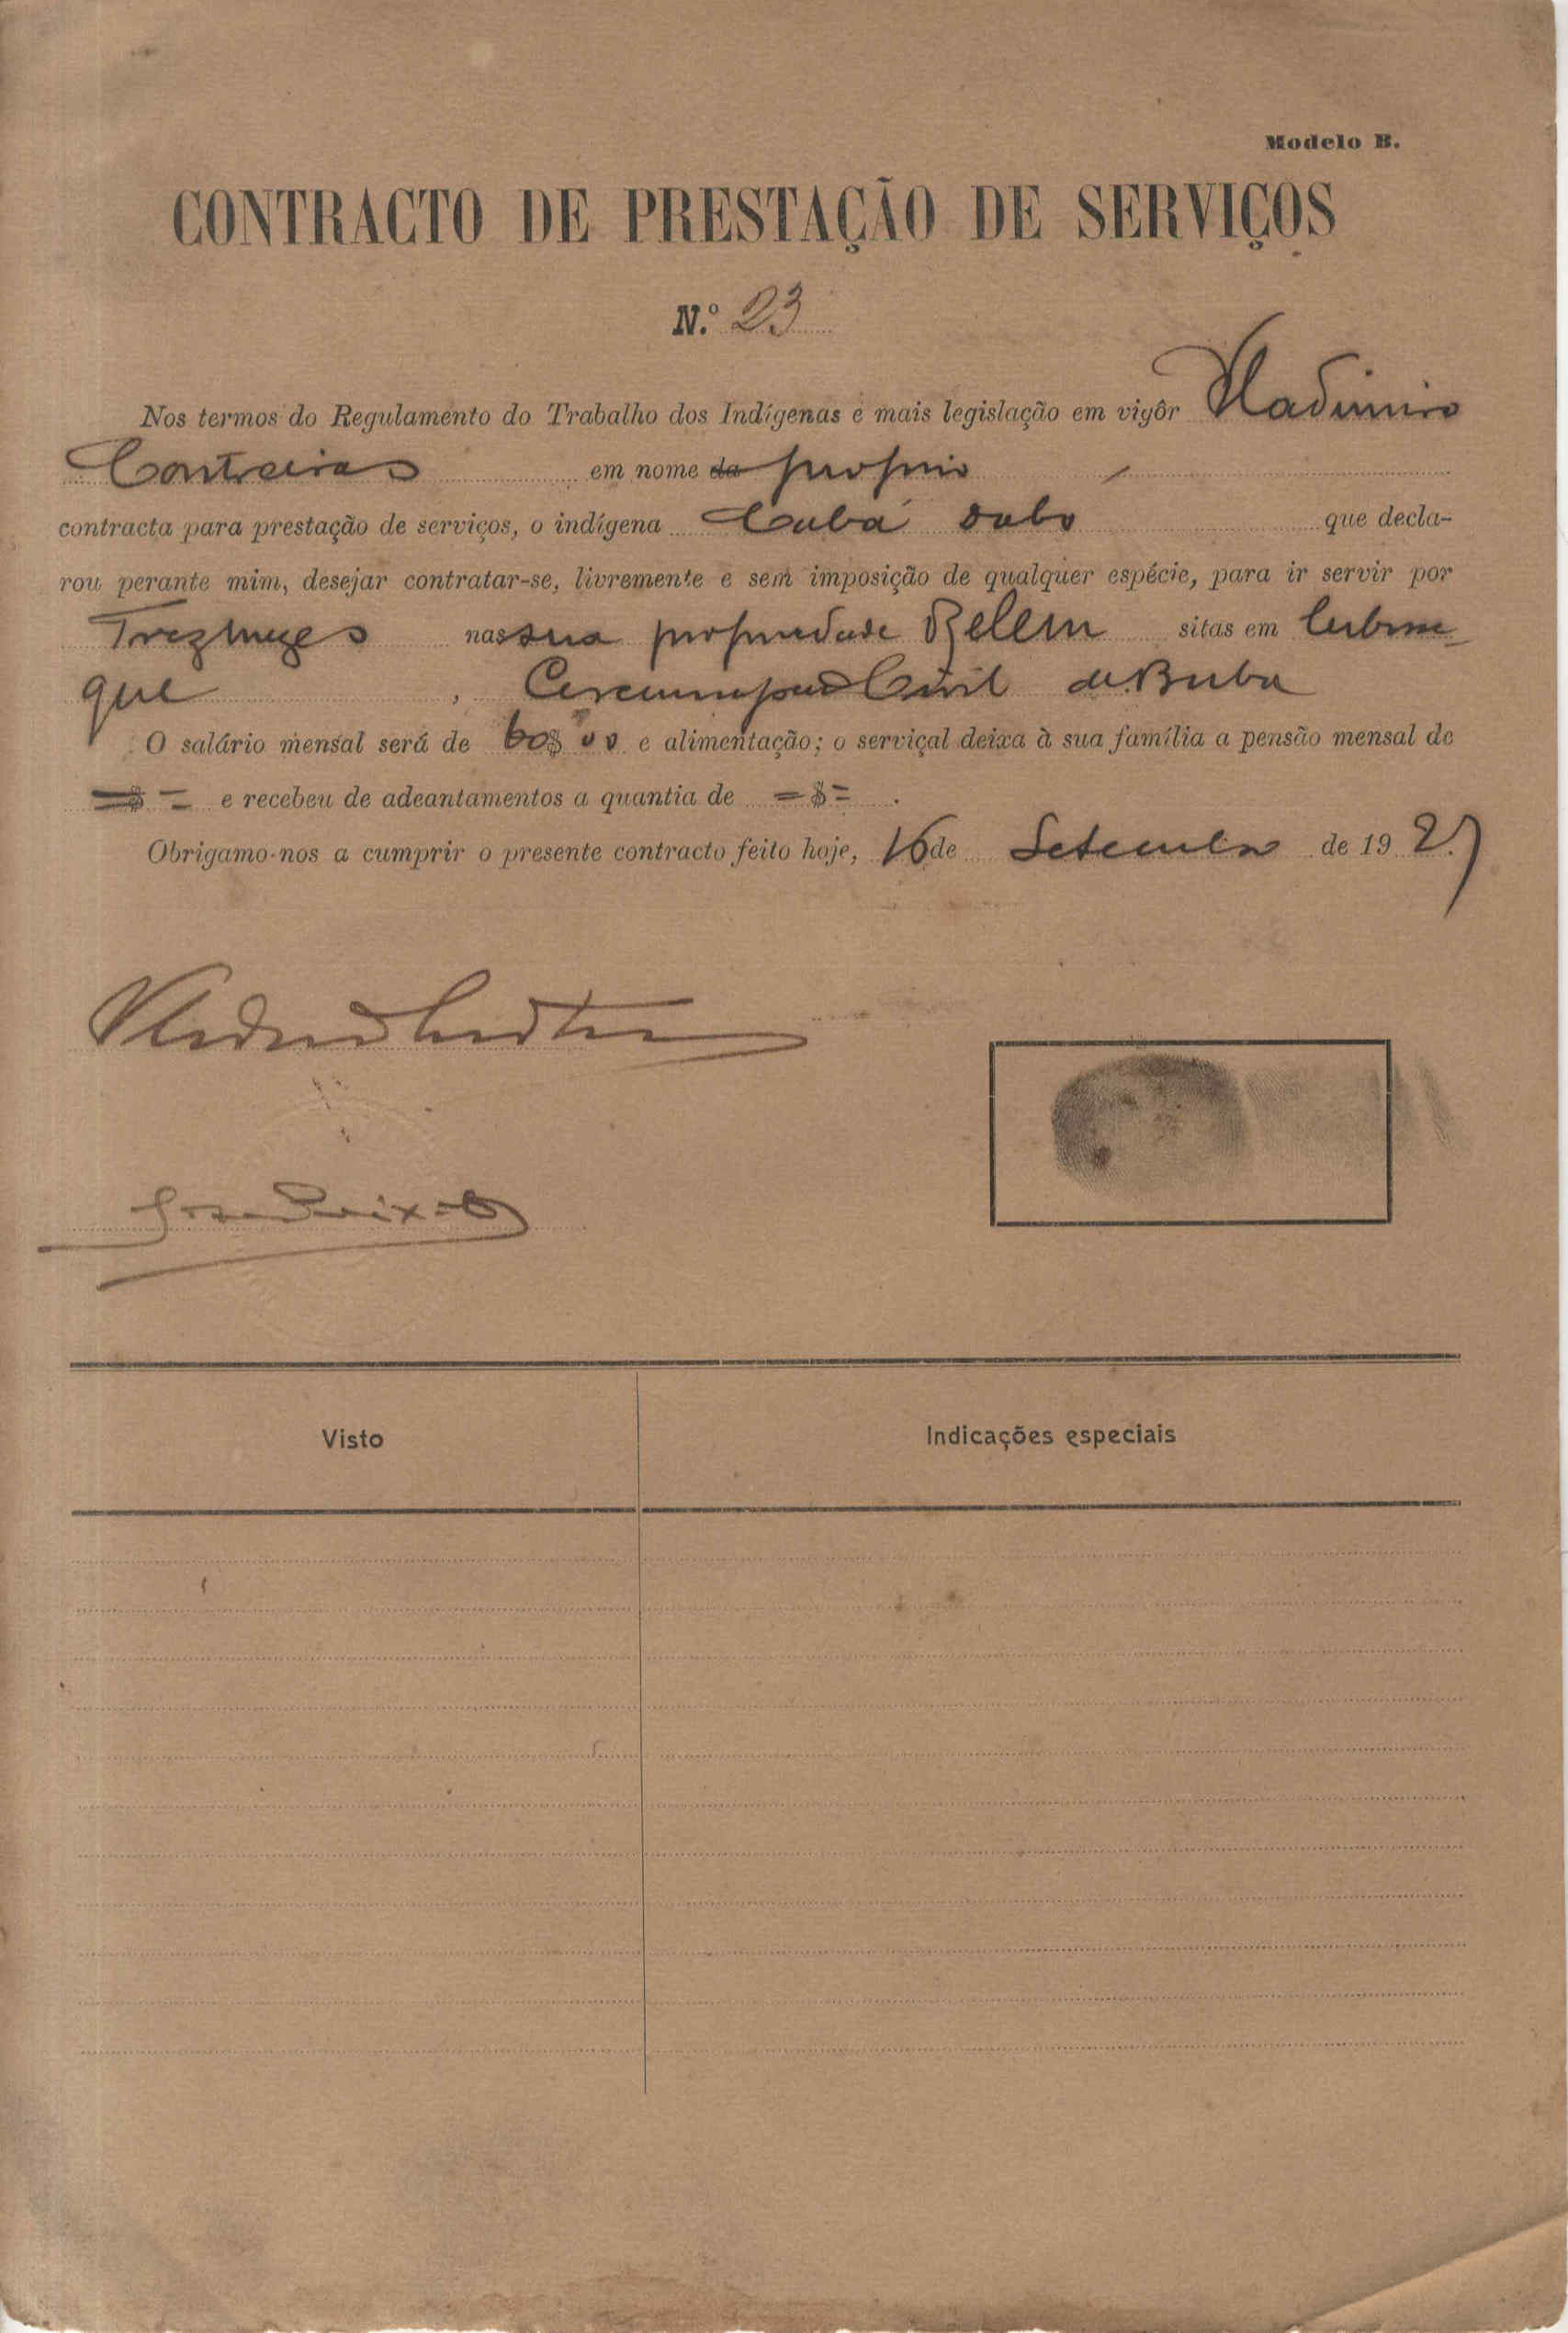 Modelo B.
CONTRACTO DE PRESTAÇÃO DE SERVIÇOS
N.º 23
Nos termos do Regulamento do Trabalho dos Indígenas e mais legislação em vigôr Vladimiro
Contreiras em nome da proprio
contracta para prestação de serviços, o indígena Cubá Dabo que decla-
rou perante mim, desejar contratar-se, livremente e sem imposição de qualquer espécie, para ir servir por
Trez mezes nas sua propriedade Belem sitas em Cubum-
que, Circumspção Civil de Buba
O salário mensal será de 60$00 e alimentação; o serviçal deixa à sua família a pensão mensal de
=$= e recebeu de adeantamentos a quantia de =$=.
Obrigamo-nos a cumprir o presente contracto feito hoje, 16 de Setembro de 1927
Visto Indicações especiais